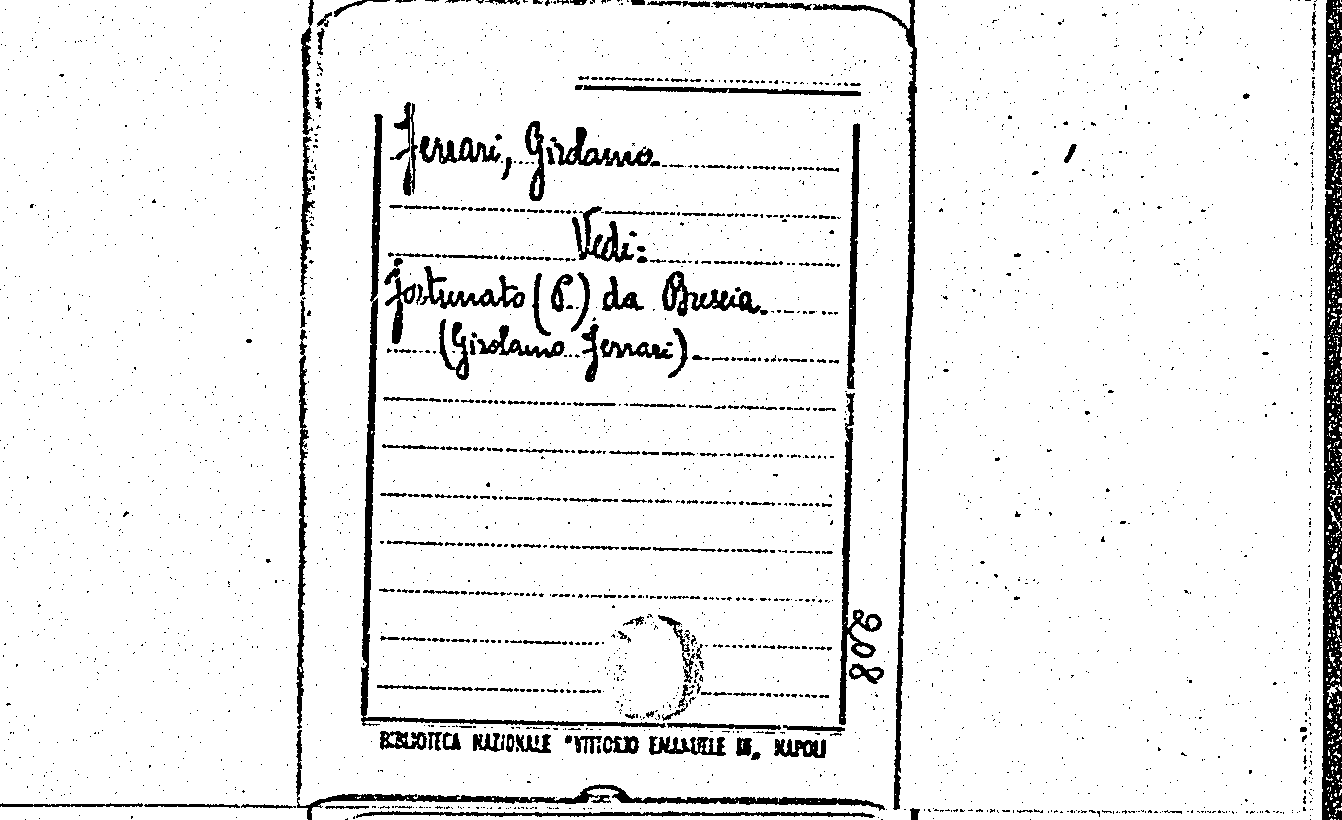 Ferrari, Girolamo
Vedi:
Fortunato (P.) da Brescia.
(Girolamo Ferrari).
808
BIBLIOTECA NAZIONALE "VITTORIO EMANUELE III„ NAPOLI